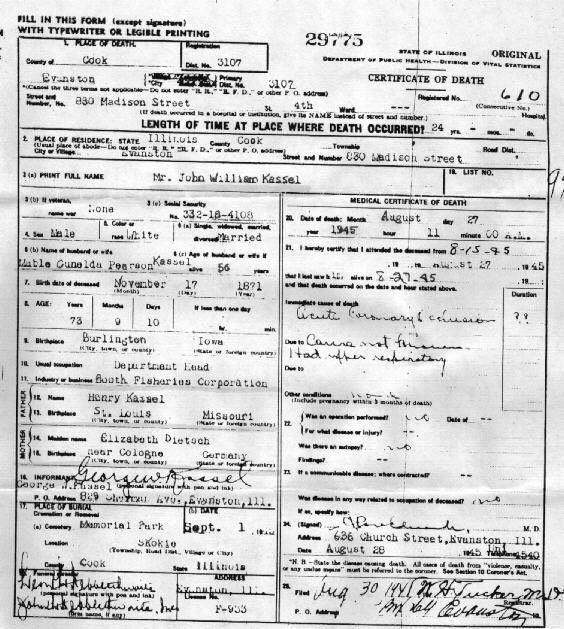 FILL IN THIS FORM (except signature)
WITH TYPEWRITER OR LEGIBLE PRINTING
29775
STATE OF ILLINOIS ORIGINAL
DEPARTMENT OF PUBLIC HEALTH—DIVISION OF VITAL STATISTICS
CERTIFICATE OF DEATH
1. PLACE OF DEATH.
Registration
County of Cook Dist. No. 3107
Evanston Primary 3107
Registered No. 610
(Consecutive No.)
*(Cancel the three terms not applicable—Do not enter "R. R.," "R. F. D.," or other P. O. address)
Street and
Number, No. 830 Madison Street St. 4th Ward
(If death occurred in a hospital or institution, give its NAME instead of street and number.) Hospital
LENGTH OF TIME AT PLACE WHERE DEATH OCCURRED? 24 yrs. - mos. - ds.
2. PLACE OF RESIDENCE: STATE Illinois County Cook Township Road Dist.
(Usual place of abode—Do not enter "R. R.," "R. F. D.," or other P. O. address)
City or Village Evanston Street and Number 830 Madison Street
3 (a) PRINT FULL NAME Mr. John William Kassel
18. LIST NO.
3 (b) If veteran, name war None
3 (c) Social Security No. 332-18-4108
4. Sex Male
5. Color or race White
6 (a) Single, widowed, married, divorced Married
6 (b) Name of husband or wife
Mable Gunelda Pearson Kassel
6 (c) Age of husband or wife if alive 56 years
7. Birth date of deceased November 17 1871
(Month) (Day) (Year)
8. AGE: Years Months Days If less than one day
73 9 10 hr. min.
9. Birthplace Burlington Iowa
(City, town, or county) (State or foreign country)
10. Usual occupation Department Head
11. Industry or business Booth Fisheries Corporation
FATHER
12. Name Henry Kassel
13. Birthplace St. Louis Missouri
(City, town, or county) (State or foreign country)
MOTHER
14. Maiden name Elizabeth Dietsch
15. Birthplace near Cologne Germany
(City, town, or county) (State or foreign country)
16. INFORMANT George W Kassel
George W. Kassel (personal signature with pen and ink)
P. O. Address 829 Sherman Ave., Evanston, Ill.
17. PLACE OF BURIAL (b) DATE
Cremation or Removal
(a) Cemetery Memorial Park Sept. 1
Location Skokie
(Township, Road Dist., Village or City)
County Cook State Illinois
ADDRESS
(personal signature with pen and ink)
Evanston, Ill.
(firm name, if any) License No. F-933
MEDICAL CERTIFICATE OF DEATH
20. Date of death: Month August day 27
year 1945 hour 11 minute 00 A.M.
21. I hereby certify that I attended the deceased from 8-15-45
to August 27, 1945
that I last saw h alive on 8-27-45
and that death occurred on the date and hour stated above.
Duration
Immediate cause of death
Acute Coronary occlusion ??
Due to
Had upper respiratory
Due to
Other conditions
(Include pregnancy within 3 months of death)
22. Was an operation performed? no Date of --
For what disease or injury? --
Was there an autopsy? no
Findings? --
23. If a communicable disease; where contracted? --
Was disease in any way related to occupation of deceased? no
If so, specify how:
24. (Signed) M. D.
Address 636 Church Street, Evanston, Ill.
Date August 28 1945 1540
*N. B.—State the disease causing death. All cases of death from "violence, casualty, or any undue means" must be referred to the coroner. See Section 10 Coroner's Act.
25. Filed Aug 30 1945 W. H. Tucker M.D.
Registrar.
P. O. Address Evanston